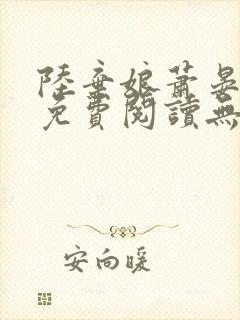 陸棄娘蕭晏
免費閱讀無
安向暖